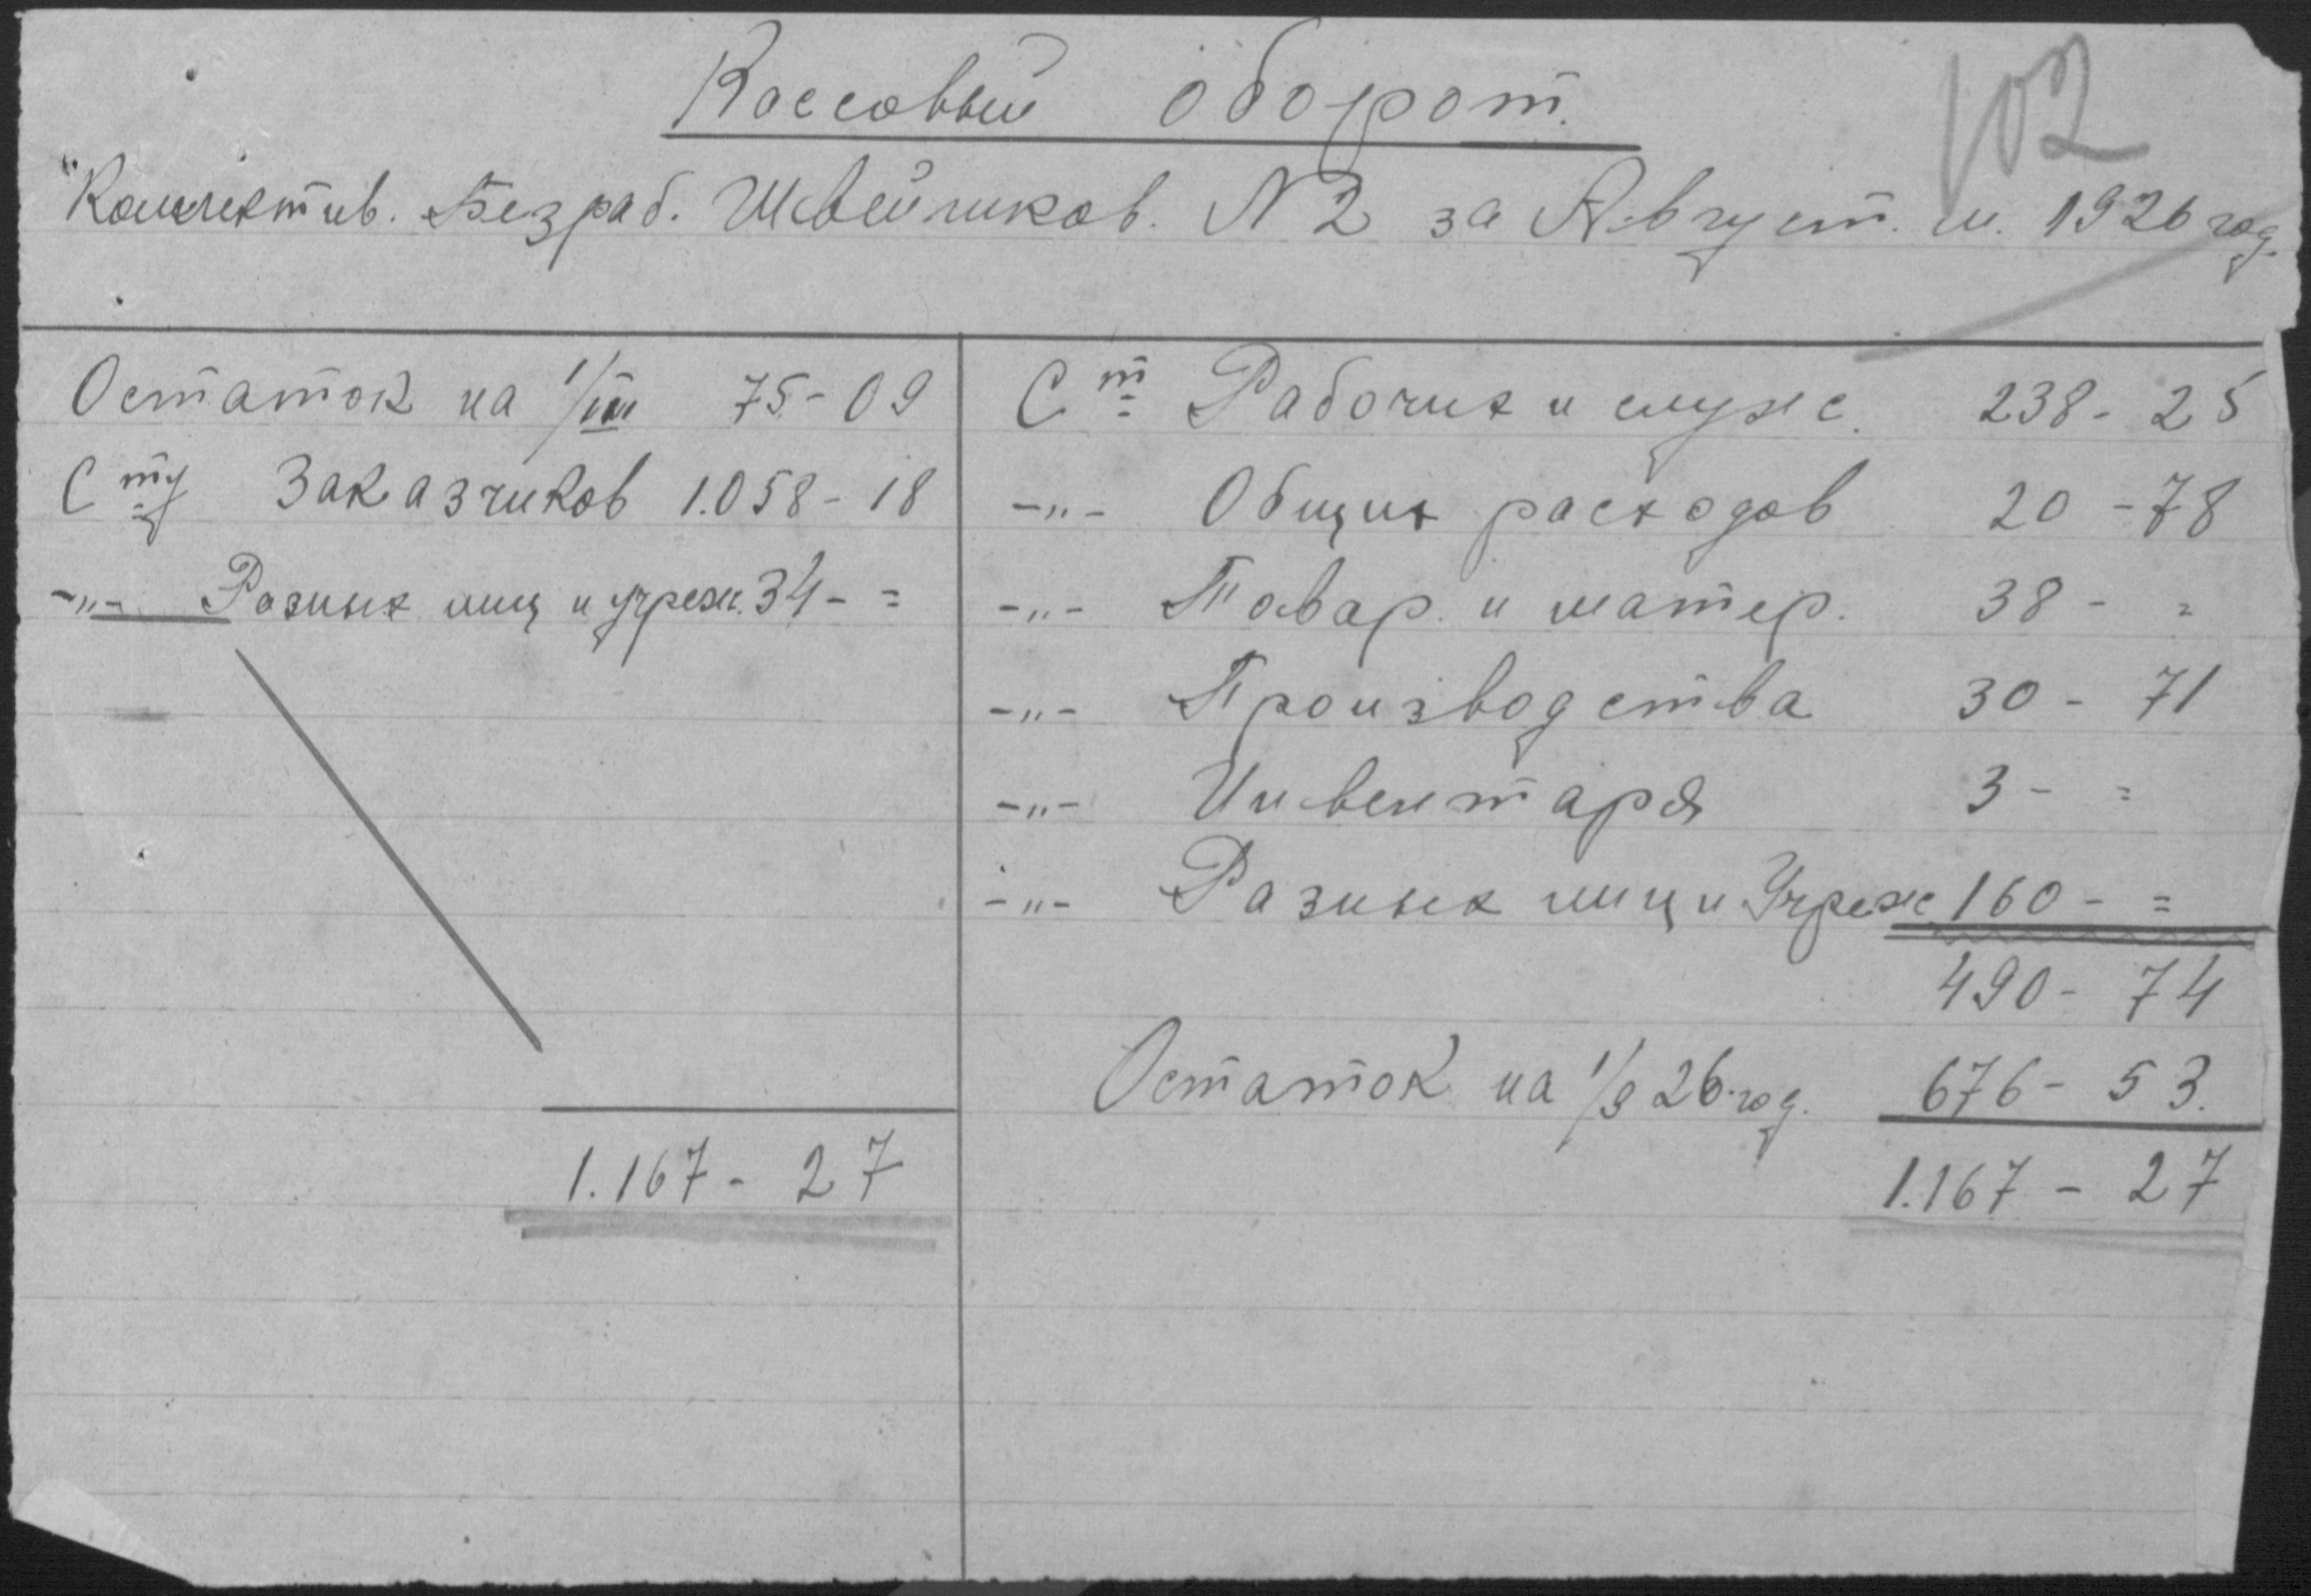 102
Кассовый оборот.
"Коллектив. Безраб. Швейников. N 2 за Август. м. 1926 год.
Остаток на 1/VIII 75-09
Сту Заказчиков 1.058-18
-"- Разных лиц и учреж. 34- =
1.167-27
Ст Рабочих и служ. 238-25
-"- Общих расходов 20-78
-"- Товар. и матер. 38- =
-"- Производства 30-71
-"- Инвентаря 3- =
-"- Разных лиц и Учреж 160- =
490-74
Остаток на 1/9 26 год. 676-53.
1.167-27